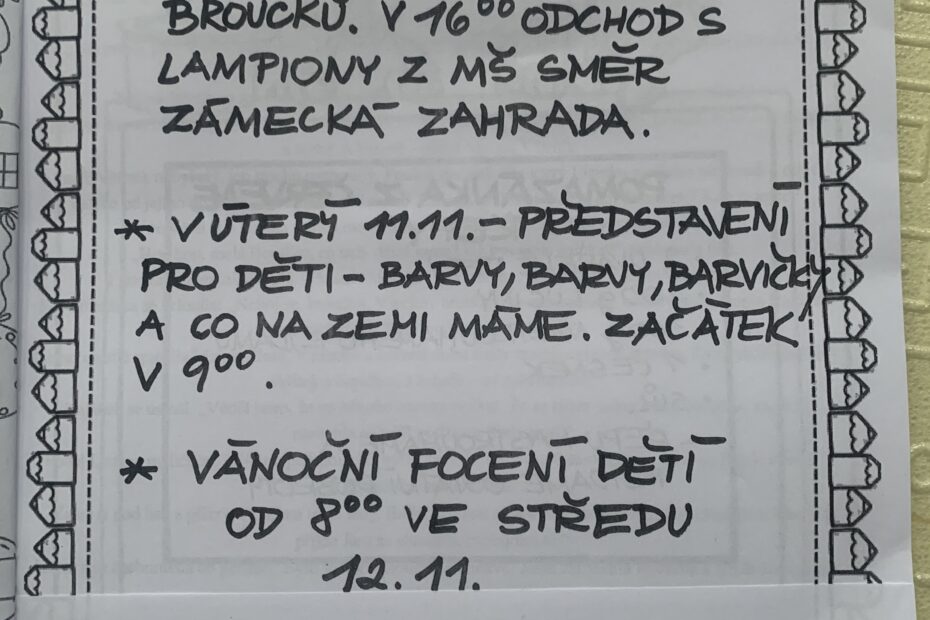 BROUČKŮ. V 16⁰⁰ ODCHOD S
LAMPIONY Z MŠ SMĚR
ZÁMECKÁ ZAHRADA.
* V ÚTERÝ 11.11. – PŘEDSTAVENÍ
PRO DĚTI – BARVY, BARVY, BARVIČKY
A CO NA ZEMI MÁME. ZAČÁTEK
V 9⁰⁰.
* VÁNOČNÍ FOCENÍ DĚTÍ
OD 8⁰⁰ VE STŘEDU
12.11.